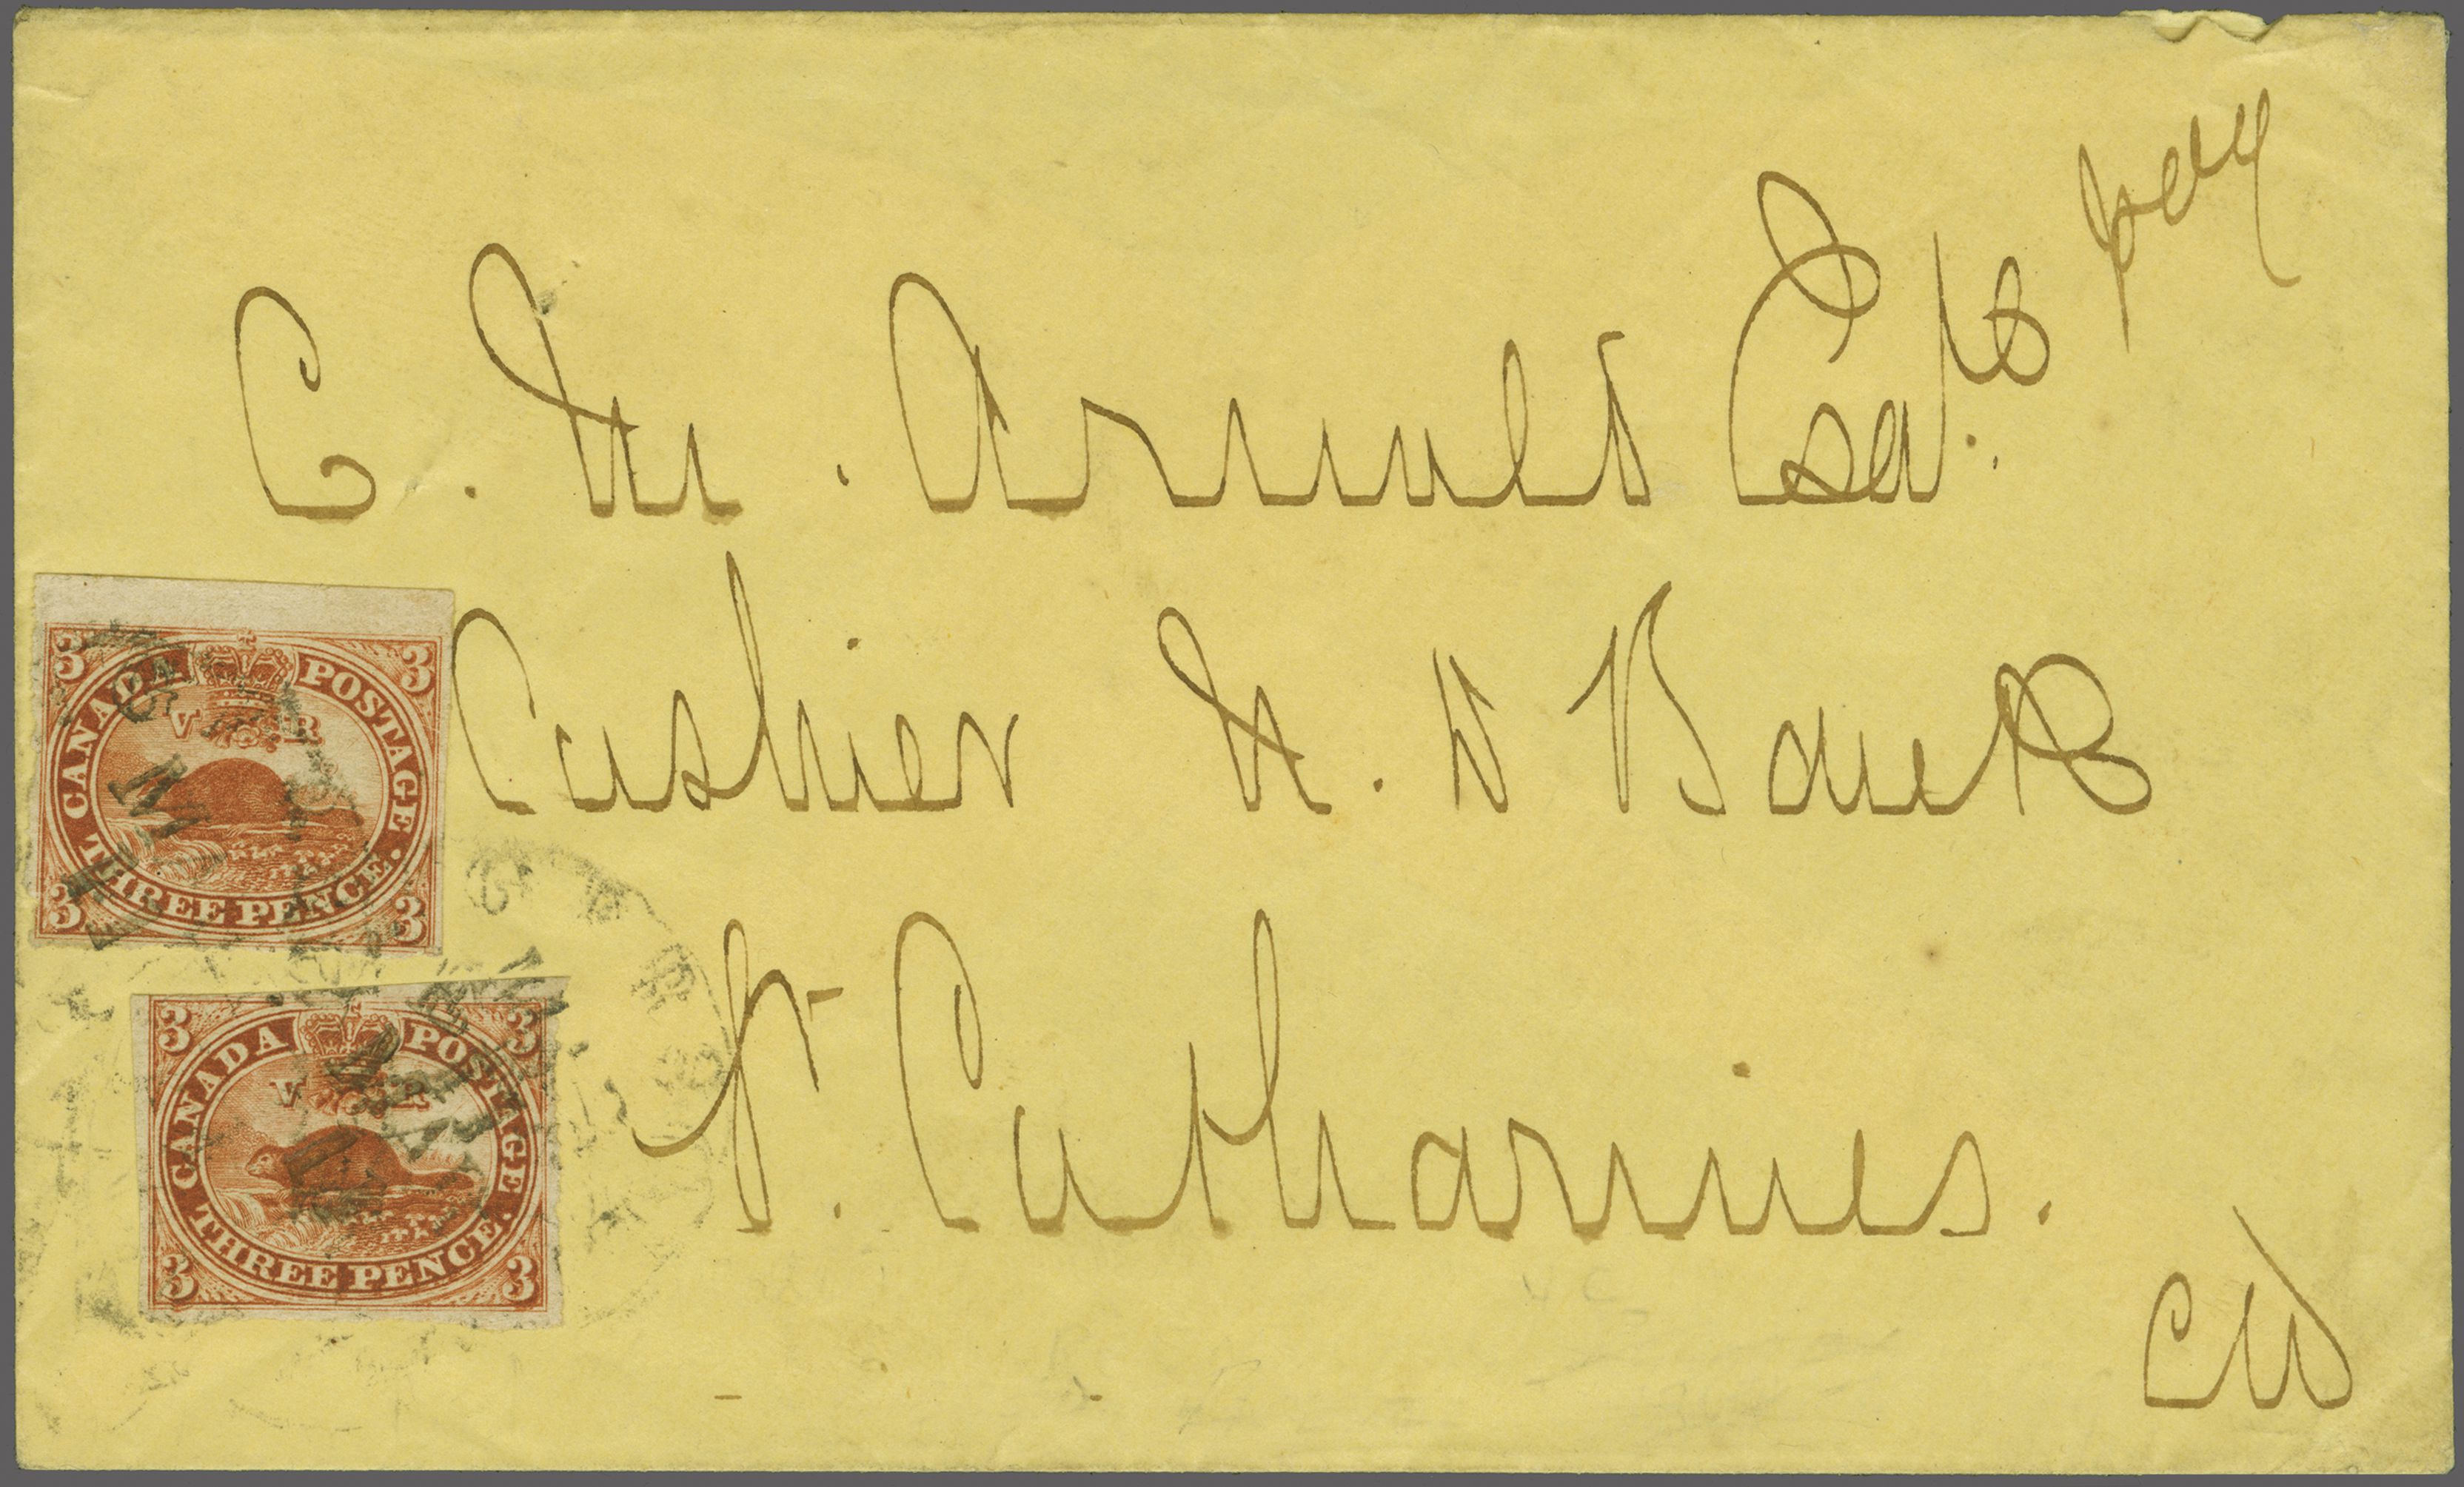 pay
C. M. Arnold Esqre.
Cashier N. D Bank
St. Catharines.
CW
3 3
CANADA POSTAGE
V R
THREE PENCE.
3 3
3 3
CANADA POSTAGE
V R
THREE PENCE.
3 3